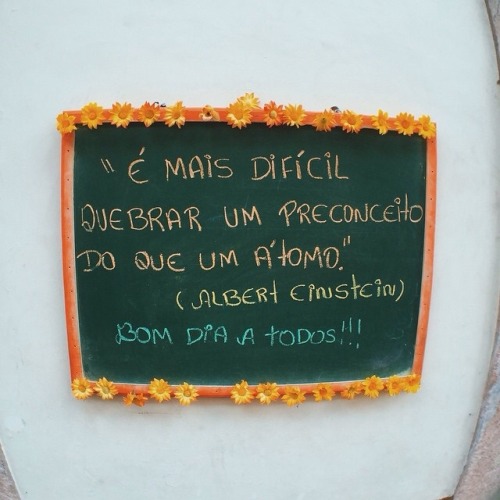 "É MAIS DIFÍCIL
QUEBRAR UM PRECONCEITO
DO QUE UM ÁTOMO."
(ALBERT EINSTEIN)
BOM DIA A TODOS!!!